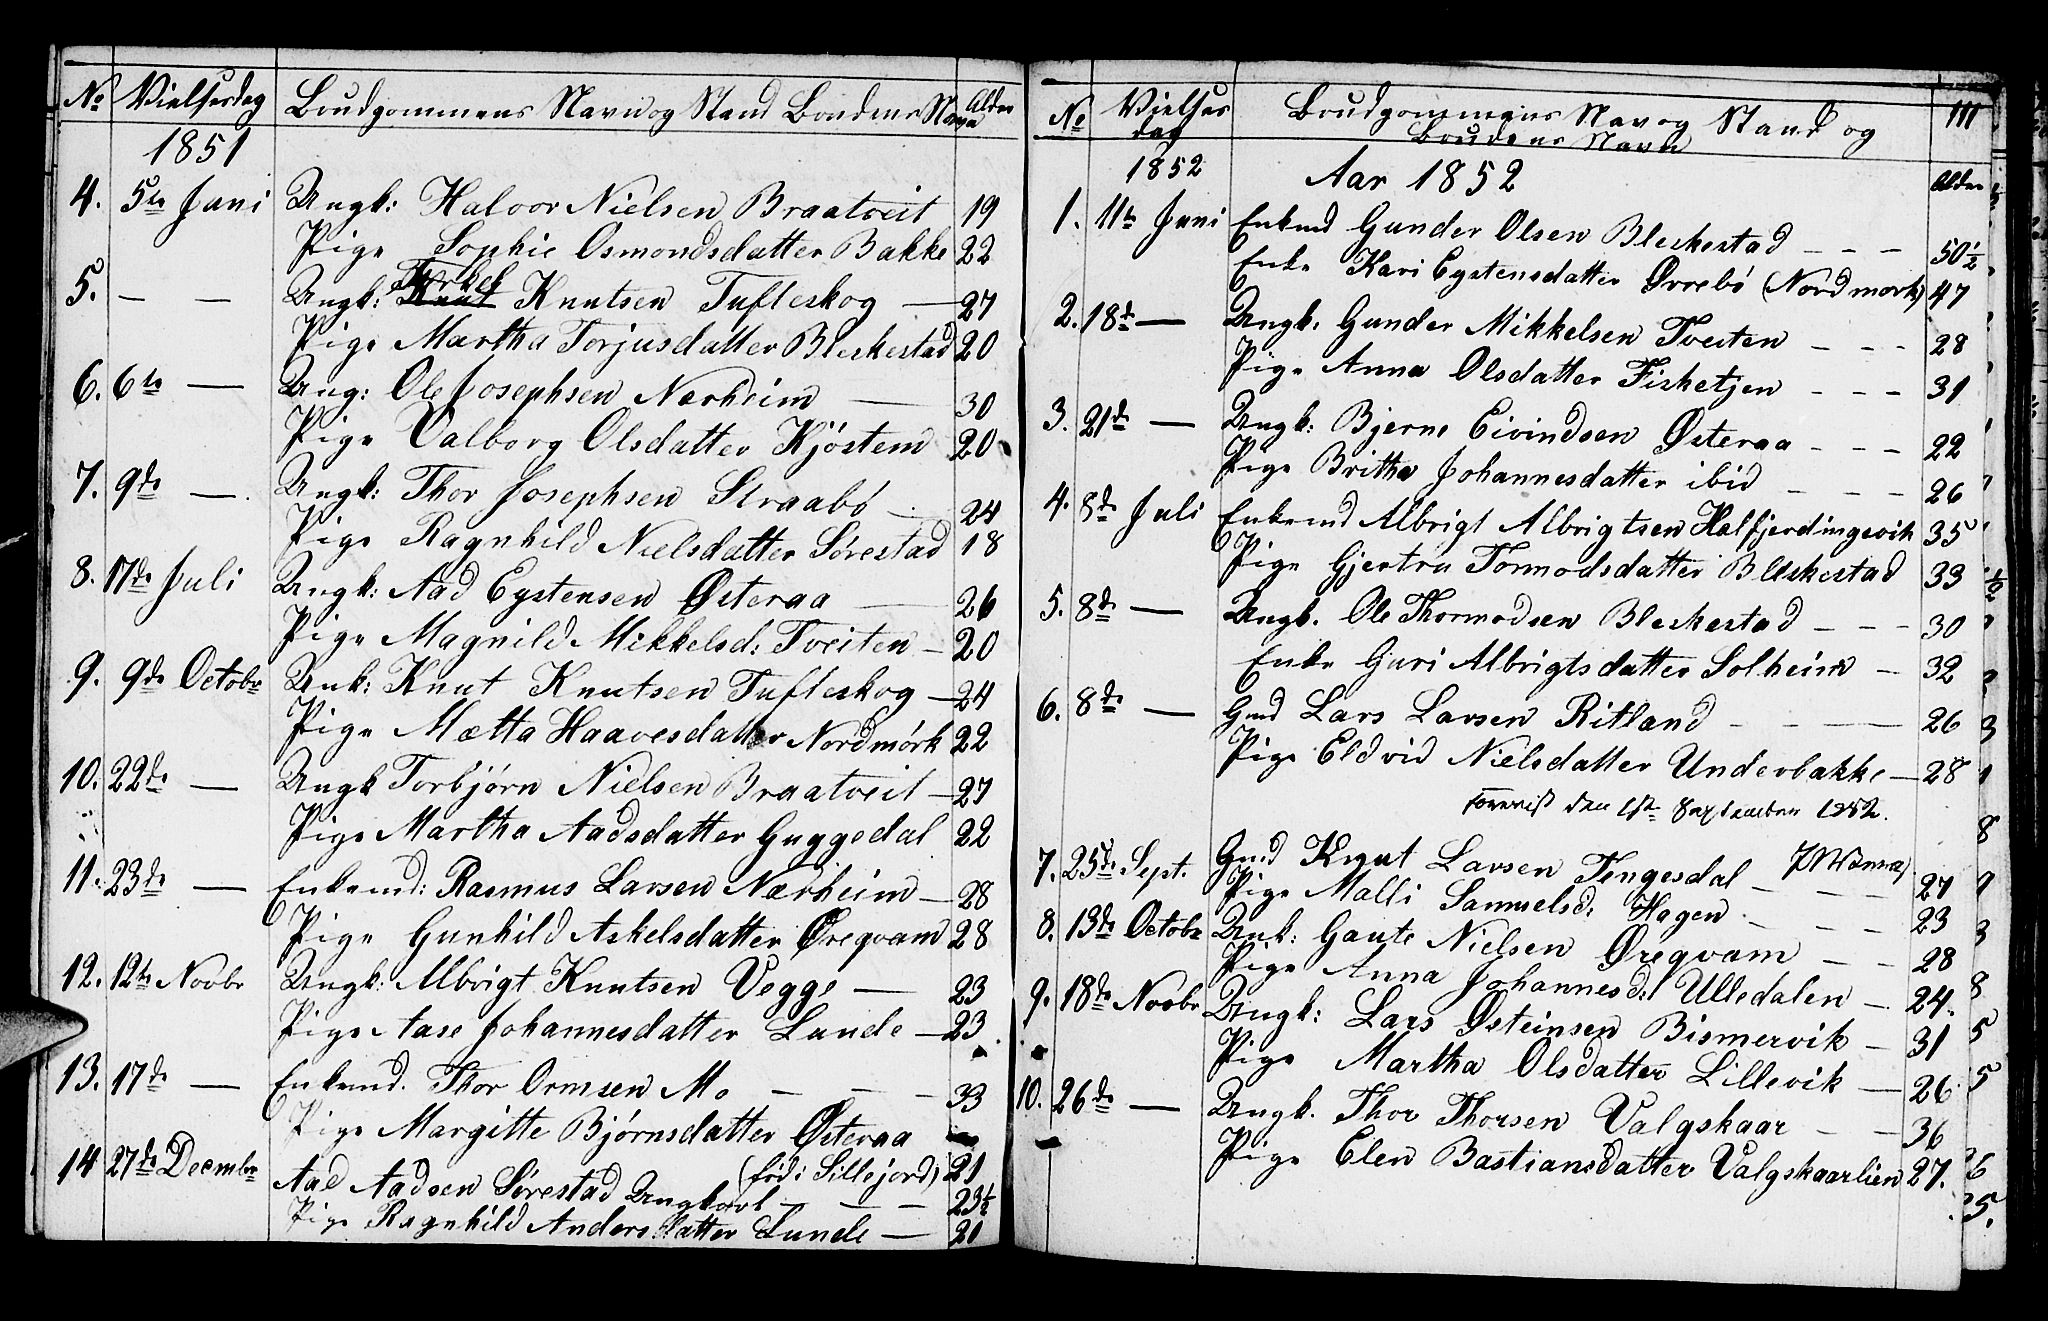 No Vielsesdag Brudgommens Navn og Stand Brudens Navn Alder
1851
4. 5te Juni Ungk: Halvor Nielsen Braatveit 19
Pige Sophie Osmondsdatter Bakke 22
Torkel
5. — — Ungk: Knut Knutsen Tufteskog — 27
Pige Martha Torjusdatter Bleskestad 20
6. 6te — Ung: Ole Josephsen Nærheim — 30
Pige Valborg Olsdatter Kjöstem 20
7. 9de — Ungk: Thor Josephsen Straabø — 24
Pige Ragnhild Nielsdatter Sørestad 18
8. 17de Juli Ungk: Aad Eystensen Østeraa — 26
Pige Magnild Mikkelsd: Tveiten — 20
9. 9de Octobr Unk: Knut Knutsen Tufteskog — 24
Pige Mætta Haavesdatter Nordmørk 22
10. 22de — Ungk Torbjørn Nielsen Braatveit — 27
Pige Martha Aadsdatter Guggedal 22
11. 23de — Enkemd: Rasmus Larsen Nærheim — 28
Pige Gunhild Askelsdatter Øreqvam 28
12. 12te Novbr Ungk: Albrigt Knutsen Vegge — 23
Pige Aase Johannesdatter Lunde — 23.
13. 17de — Enkemd. Thor Ormsen Mo — — — 33
Pige Margitte Bjørnsdatter Østeraa
(fød i Sillejord) 21
14 27de Decmbr Aad Aadsen Sørestad Ungkarl — — — 23½
Pige Ragnhild Andersdatter Lunde — 21
No Vielses dag Brudgommens Navn og Stand og 111
Brudens Navn
1852 Aar 1852 Alder
1. 11te Juni Enkemd Gunder Olsen Bleskestad — — — 50½
Enke Kari Eystensdatter Øvrebö (Nordmork) 47
2. 18de — Ungk. Gunder Mikkelsen Tveiten — — — 28
Pige Anna Olsdatter Fisketjen — — — 31
3. 21de — Ungk: Bjerne Eivindsen Østeraa — — — 22
Pige Britha Johannesdatter ibid — — — 26
4. 8de Juli Enkemd Albrigt Albrigtsen Halfjerdingsvik 35
Pige Gjertru Tormodsdatter Bleskestad 33
5. 8de — Ungk. Ole Thormodsen Bleskestad — — — 30
Enke Guri Albrigtsdatter Solheim — 32
6. 8de — Gmd Lars Larsen Ritland — — — 26
Pige Eldvid Nielsdatter Underbakke — 28
den 1ste September 1852.
7. 25de Sept. Gmd Knut Larsen Tengesdal — — — 27
Pige Malli Samuelsd: Hagen — — — 23
8. 13de Octobr Unk: Gaute Nielsen Øreqvam — — 28
Pige Anna Johannesd: Ulledalen — 24.
9. 18de Novbr Ungk: Lars Østeinsen Bismervik — 31
Pige Martha Olsdatter Lillevik — 26
10. 26de — Ungk. Thor Thorsen Valgskaar — — 36
Pige Elen Bastiansdatter Valgskaarlien 27.